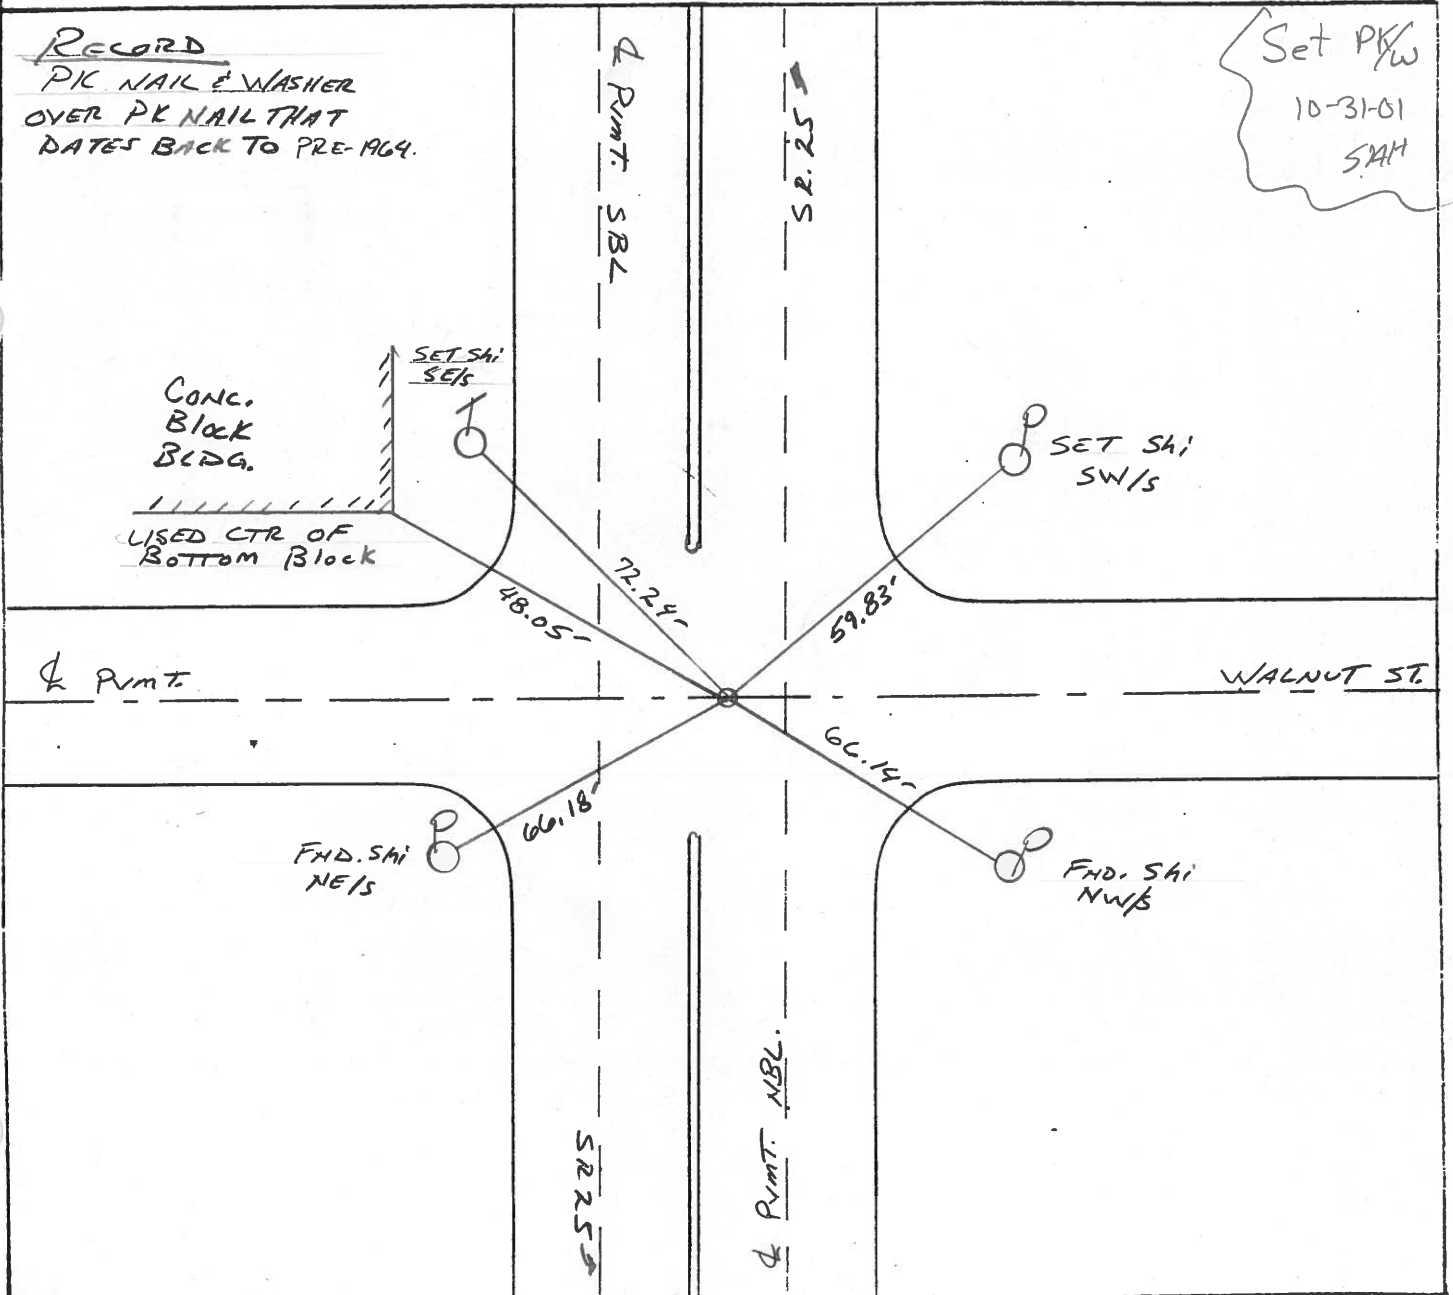 RECORD
PK NAIL & WASHER
OVER PK NAIL THAT
DATES BACK TO PRE-1964.
Set PK/W
10-31-01
SAH
℄ PVMT. SBL
SR.25
SET Shi
SE/S
CONC.
BlocK
BLDG.
USED CTR OF
BOTTOM BlocK
SET Shi
SW/S
72.24'
48.05'
59.83'
℄ PVMT.
WALNUT ST.
66.14'
66.18'
FND. Shi
NE/S
FND. Shi
NW/S
SR 25
℄ PVMT. NBL.